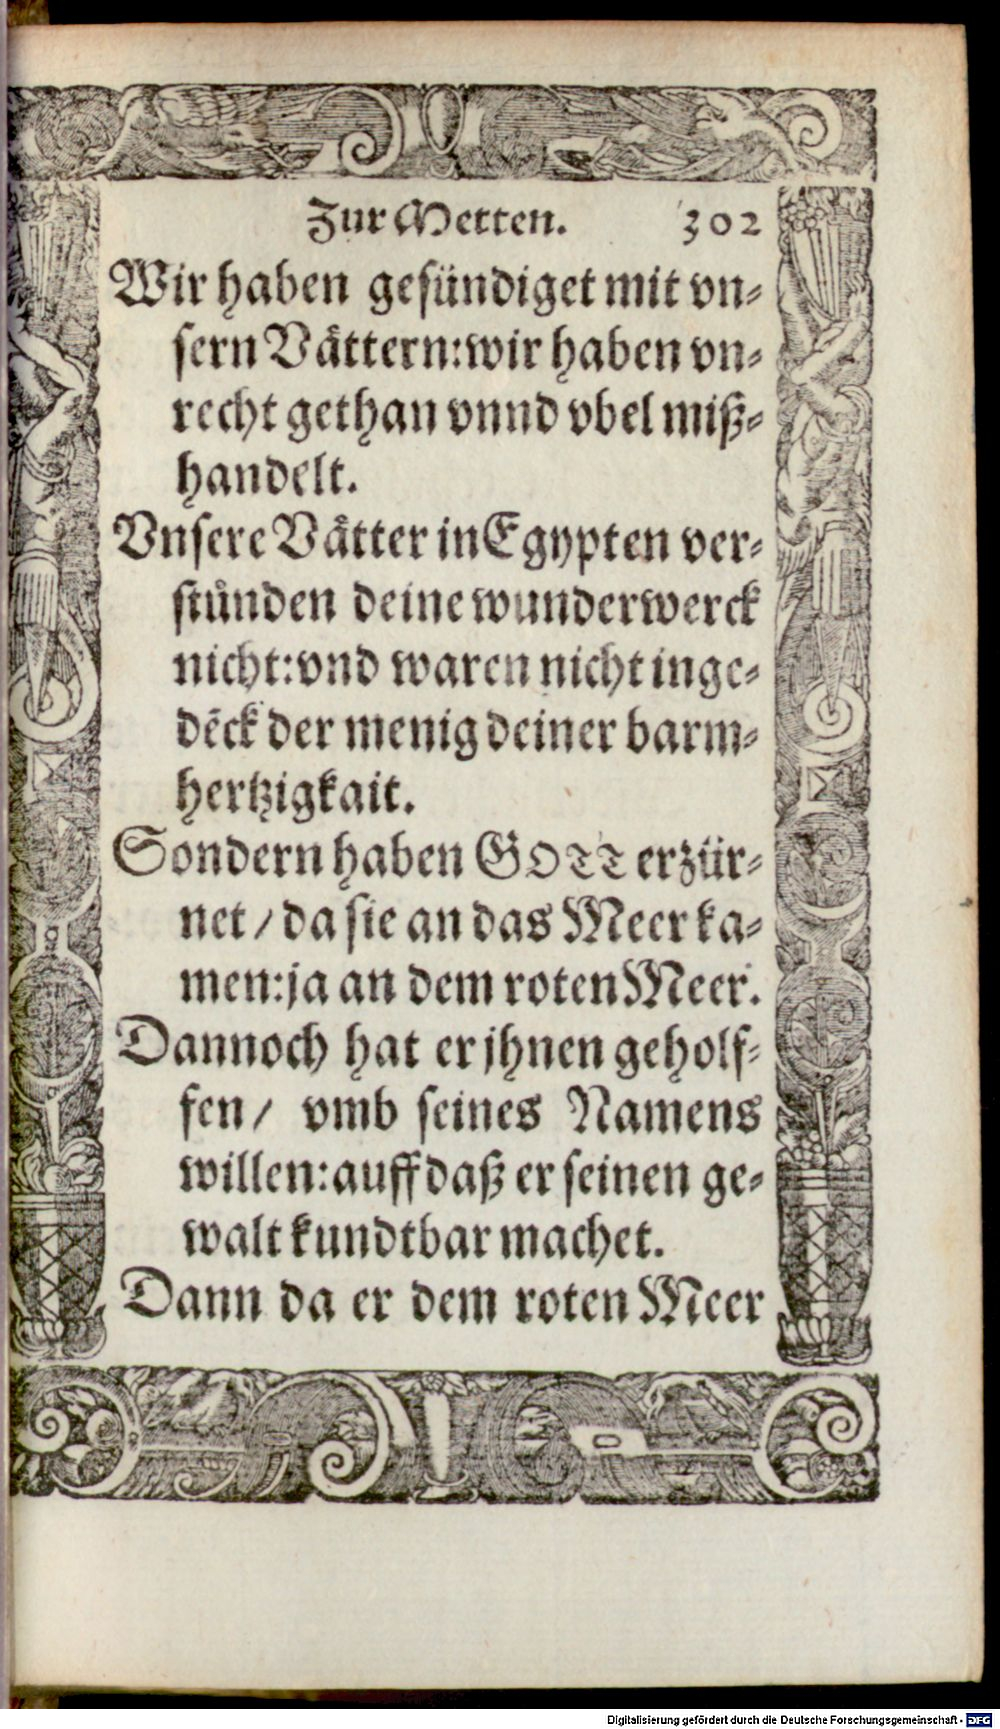 Zur Metten. 302
Wir haben gesündiget mit vn-
sern Vättern: wir haben vn-
recht gethan vnnd vbel miß-
handelt.
Vnsere Vätter in Egypten ver-
stůnden deine wunderwerck
nicht: vnd waren nicht inge-
dēck der menig deiner barm-
hertzigkait.
Sondern haben GOTT erzür-
net / da sie an das Meer ka-
men: ja an dem roten Meer.
Dannoch hat er jhnen geholf-
fen / vmb seines Namens
willen: auff daß er seinen ge-
walt kundtbar machet.
Dann da er dem roten Meer
Digitalisierung gefördert durch die Deutsche Forschungsgemeinschaft - DFG